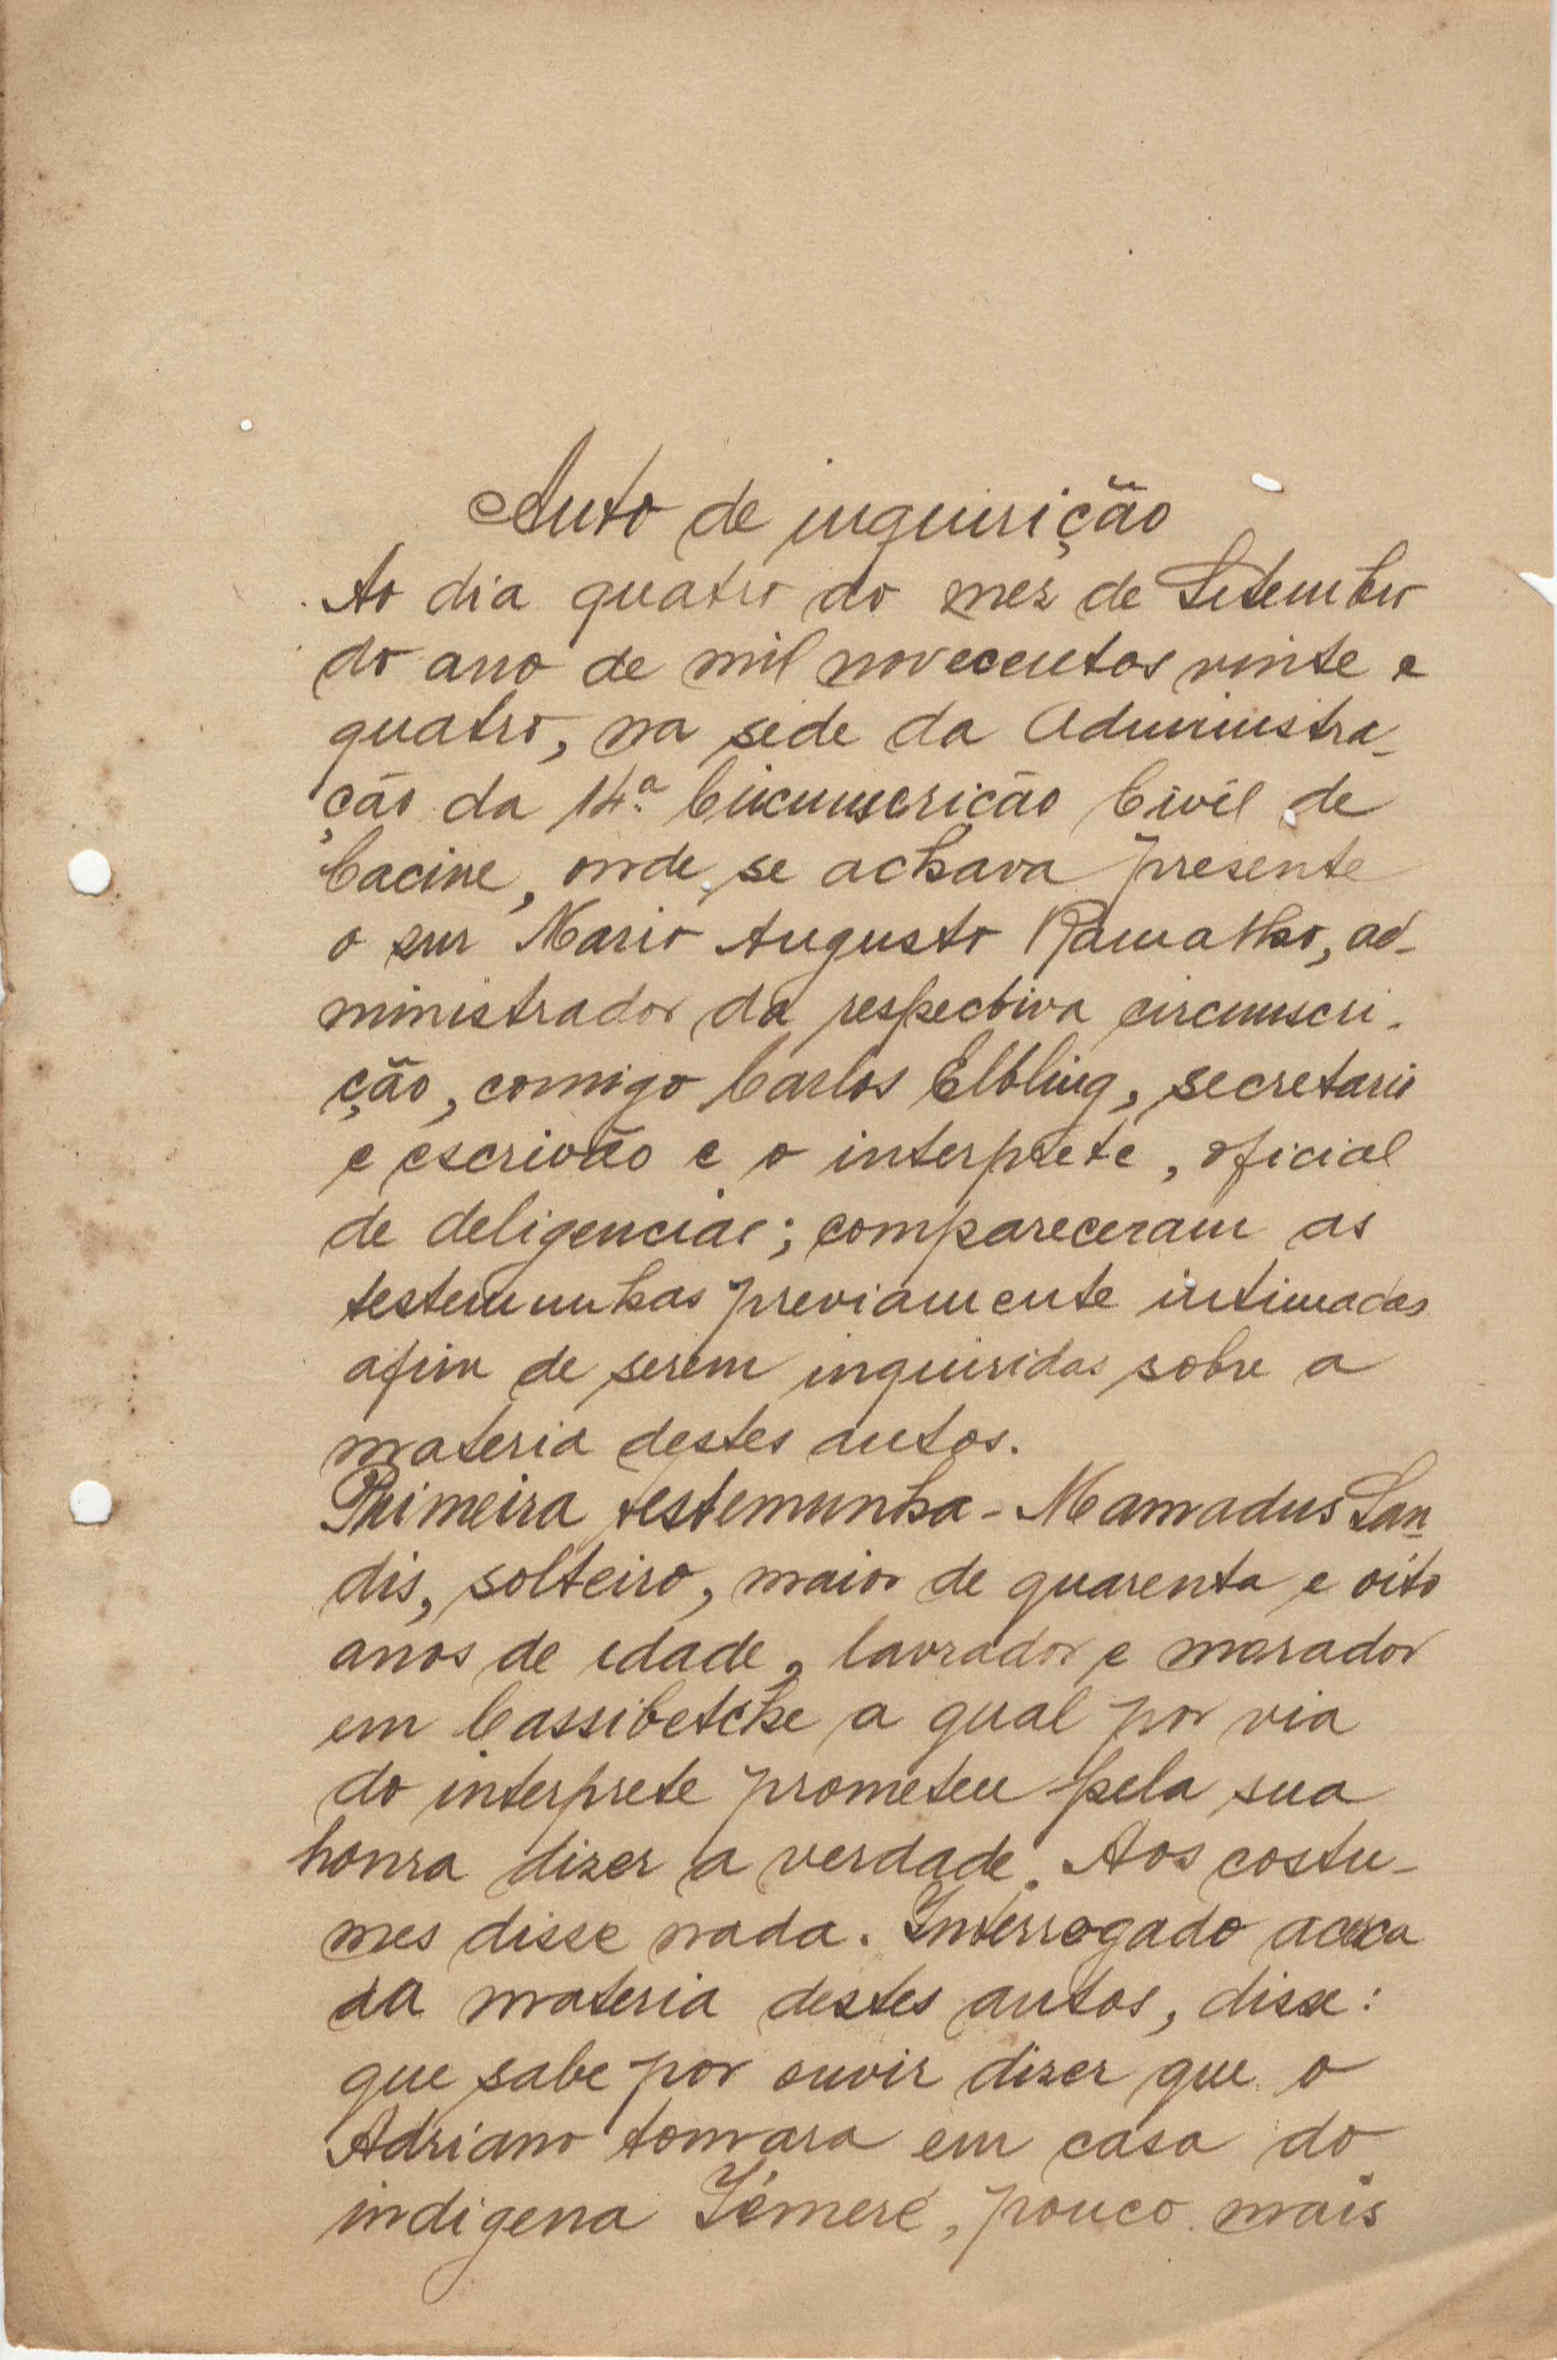 Auto de inquirição
Ao dia quatro do mez de Setembro
do ano de mil novecentos vinte e
quatro, na sede da Administra-
ção da 14.ª Circunscrição Civil de
Cacine, onde se achava presente
o snr Mario Augusto Ramalho, ad-
ministrador da respectiva circunscri-
ção, comigo Carlos Elbling, secretario
e escrivão e o interprete, oficial
de deligencias; compareceram as
testemunhas previamente intimadas
afim de serem inquiridas sobre a
materia destes autos.
Primeira testemunha - Mamadus San-
dis, solteiro, maior de quarenta e oito
anos de idade, lavrador e morador
em Cassibetche a qual por via
do interprete prometeu pela sua
honra dizer a verdade. Aos costu-
mes disse nada. Interrogado acerca
da materia destes autos, disse:
que sabe por ouvir dizer que o
Adriano tomara em casa do
indigena Iémeré, pouco mais